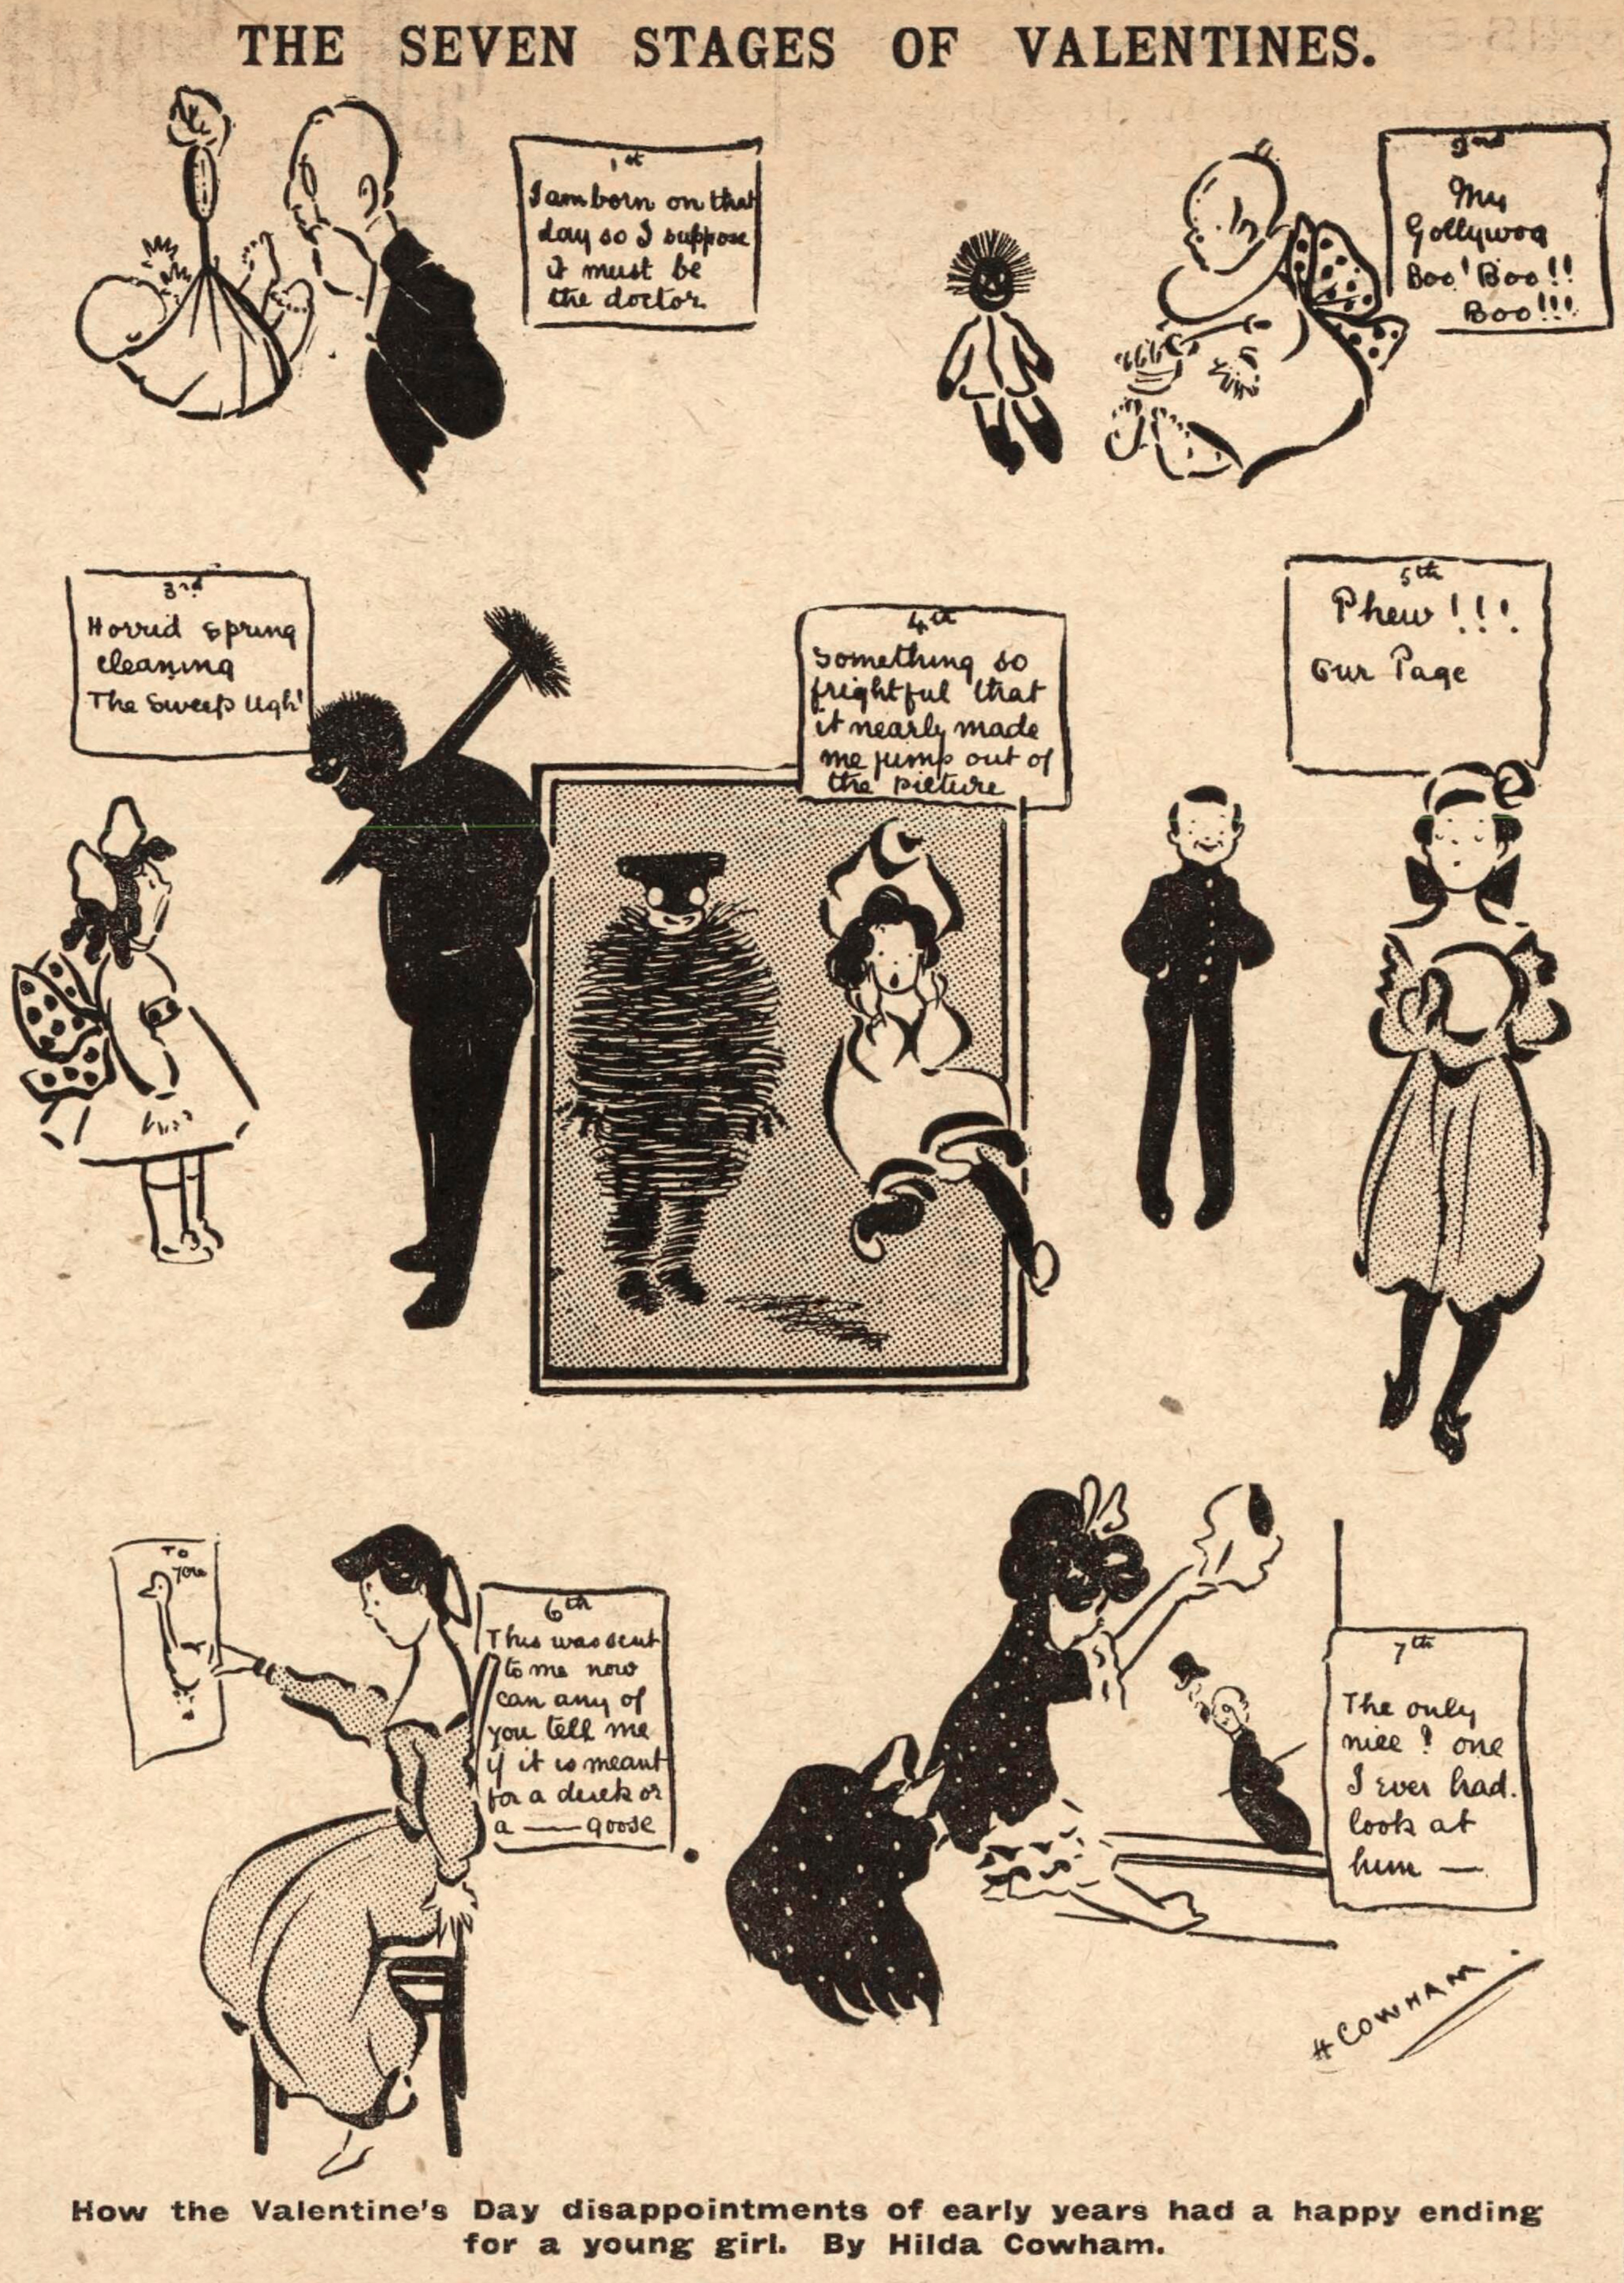 THE SEVEN STAGES OF VALENTINES.
1st
I am born on that
day so I suppose
it must be
the doctor
2nd
My
Gollywog
Boo! Boo!!
Boo!!!
3rd
Horrid Spring
cleaning
The Sweep Ugh!
4th
Something so
frightful that
it nearly made
me jump out of
the picture
5th
Phew!!!
Our Page
TO
you
6th
This was sent
to me now
can any of
you tell me
if it is meant
for a duck or
a — goose
7th
The only
nice? one
I ever had.
look at
him —
H COWHAM.
How the Valentine's Day disappointments of early years had a happy ending
for a young girl. By Hilda Cowham.